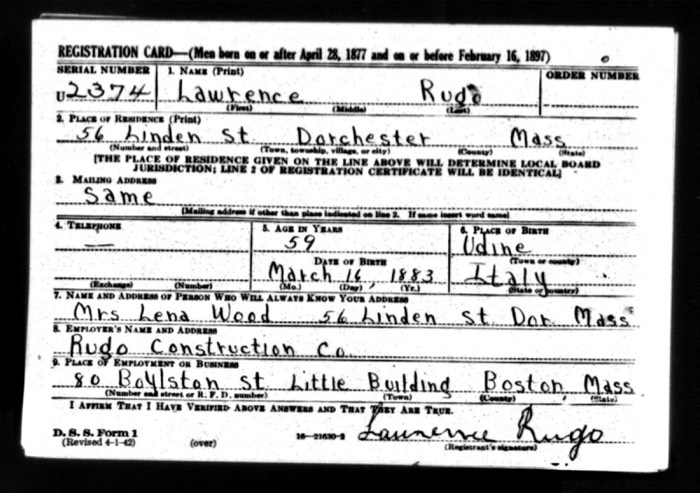 REGISTRATION CARD—(Men born on or after April 28, 1877 and on or before February 16, 1897)
SERIAL NUMBER 1. NAME (Print) ORDER NUMBER
U 2374 Lawrence Rugo
(First) (Middle) (Last)
2. PLACE OF RESIDENCE (Print)
56 Linden St. Dorchester Mass
(Number and street) (Town, township, village, or city) (County) (State)
[THE PLACE OF RESIDENCE GIVEN ON THE LINE ABOVE WILL DETERMINE LOCAL BOARD
JURISDICTION; LINE 2 OF REGISTRATION CERTIFICATE WILL BE IDENTICAL]
3. MAILING ADDRESS
Same
[Mailing address if other than place indicated on line 2. If same insert word same]
4. TELEPHONE 5. AGE IN YEARS 6. PLACE OF BIRTH
— 59 Udine
DATE OF BIRTH (Town or county)
March 16, 1883 Italy
(Exchange) (Number) (Mo.) (Day) (Yr.) (State or country)
7. NAME AND ADDRESS OF PERSON WHO WILL ALWAYS KNOW YOUR ADDRESS
Mrs Lena Wood 56 Linden St Dor. Mass
8. EMPLOYER'S NAME AND ADDRESS
Rugo Construction Co
9. PLACE OF EMPLOYMENT OR BUSINESS
80 Boylston St Little Building Boston Mass
(Number and street or R. F. D. number) (Town) (County) (State)
I AFFIRM THAT I HAVE VERIFIED ABOVE ANSWERS AND THAT THEY ARE TRUE.
D. S. S. Form 1
(Revised 4-1-42) (over) 16—21630-2 Lawrence Rugo
(Registrant's signature)